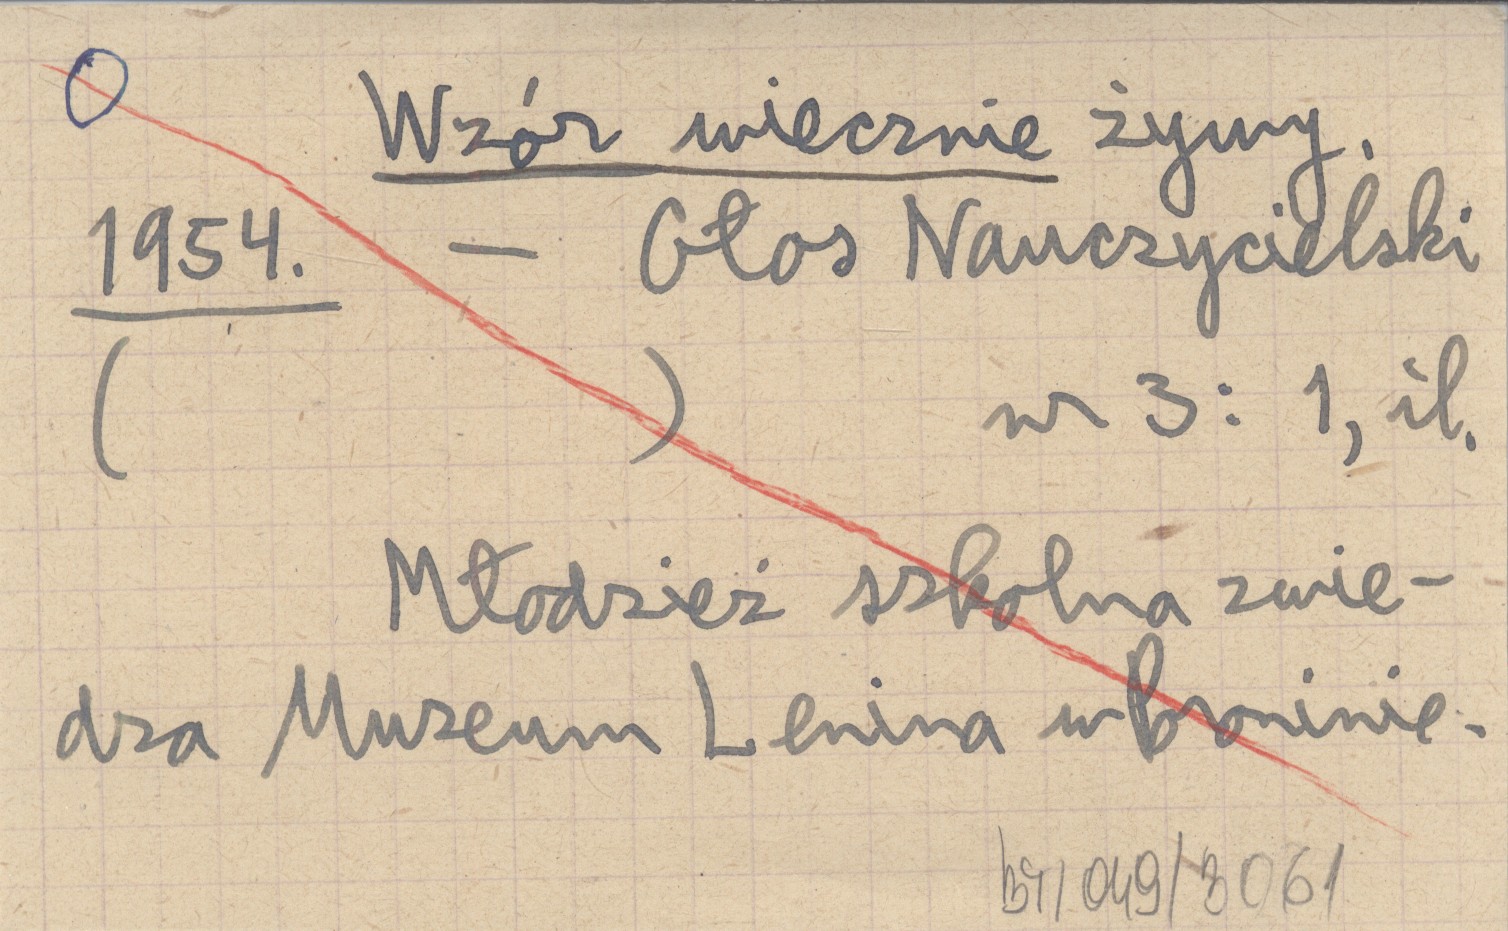 Wzór wiecznie żywy.
1954. — Głos Nauczycielski
( ) nr 3: 1, il.
Młodzież szkolna zwie-
dza Muzeum Lenina w Poroninie.
BT/049/3061